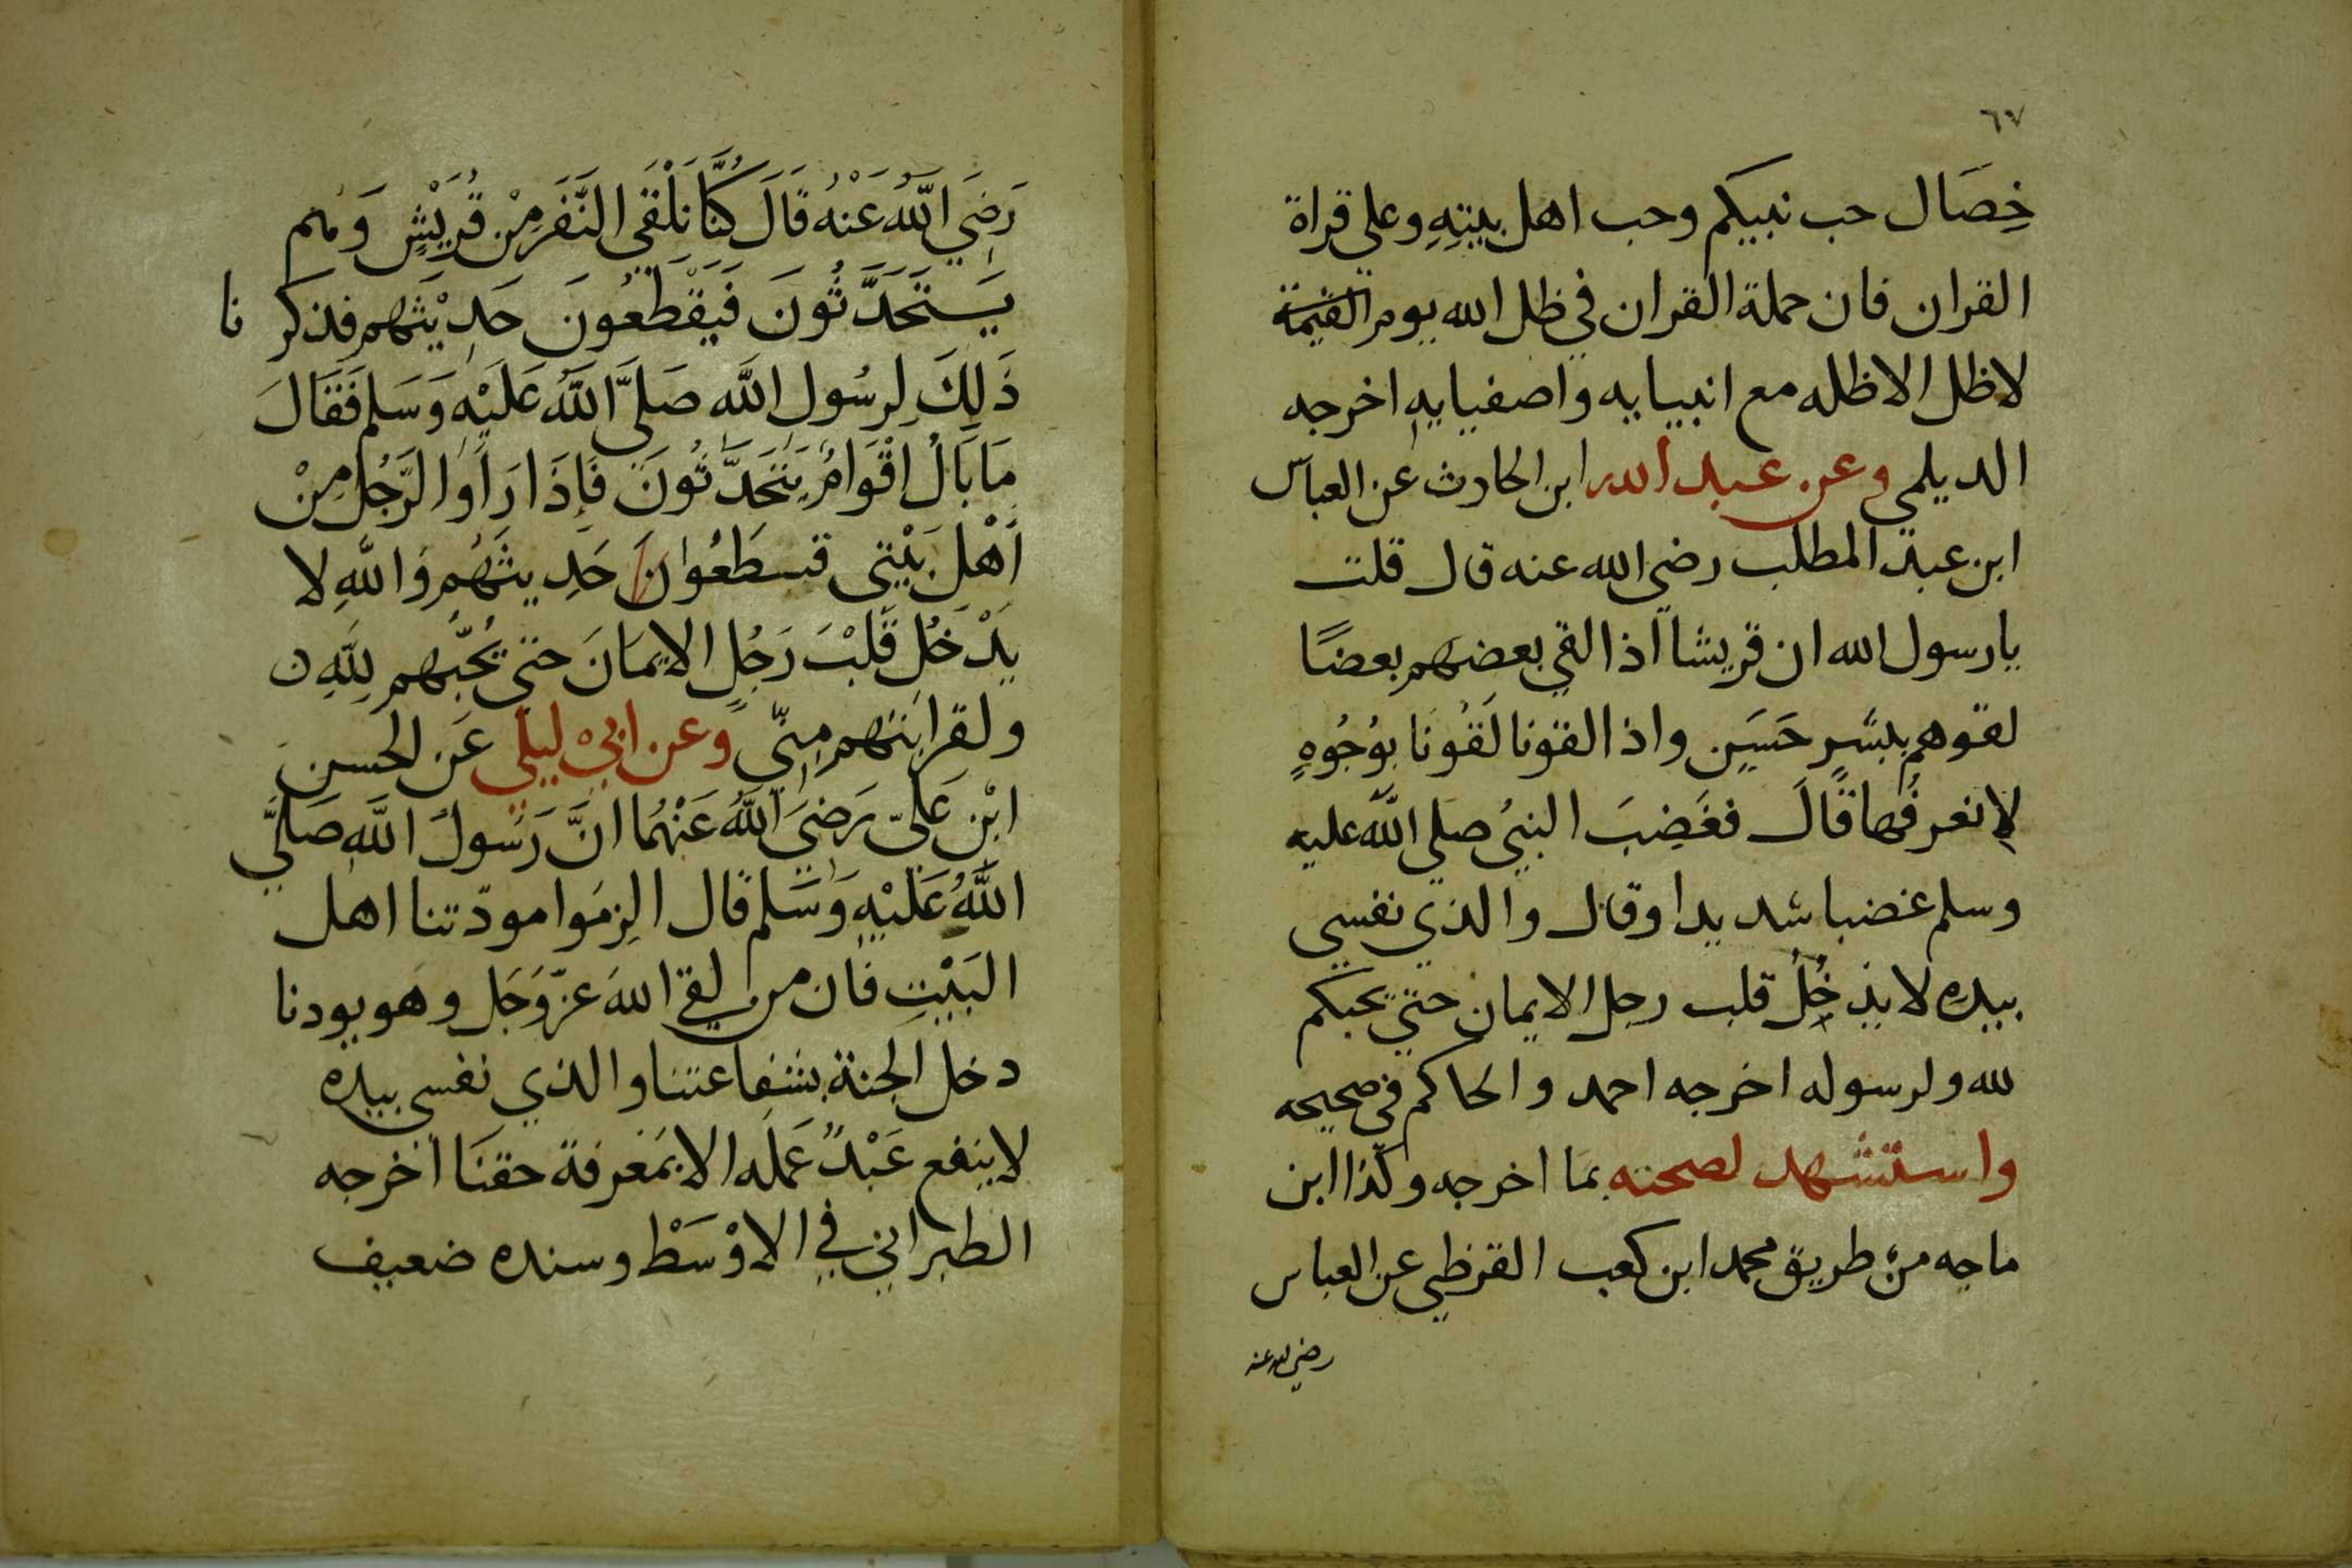 ٦٧
خِصَال حب نبيكم وحب اهل بيتِهِ وعلى قراة
القران فان حملة القران في ظل الله يوم القيمة
لاظل الاظله مع انبيايه واصفيايهِ اخرجه
الديلمي وعن عبد الله ابن الحارث عن العباس
ابن عبد المطلب رضي الله عنه قال قلت
يارسول الله ان قريشا اذا لقي بعضهم بعضًا
لقوهم ببشرٍ حَسَنٍ واذا لقونا لَقُونَا بوُجُوهٍ
لانعرفُها قَالَ فغَضِبَ النبيُ صلي اللَّه عليه
وسلم غضبا شديدا وقال والذي نفسي
بيدهِ لا يدخُلُ قلب رجل الايمان حتي يحبكم
لله ولرسوله اخرجه احمد والحاكم في صحيحه
واستشهد لصحته بما اخرجه وكذا ابن
ماجه من طريق محمد ابن كعب القرظي عن العباس
رضي الله عنه
رَضِيَ اللَّهُ عَنْهُ قَالَ كُنَّا نَلْقَي النَّفَرَ مِنْ قُرَيْشٍ وَهُم
يَتَحَدَّثُونَ فَيَقْطَعُونَ حَدِيْثَهم فذكرنا
ذَلِكَ لِرسُولِ اللَّه صَلَّي اللَّهُ عَلَيْهِ وَسَلم فَقَالَ
مَا بَالُ اقْوَامٌ يَتَحَدَّثُونَ فَاِذَا رَاَوا الرَّجُلَ مِنْ
اَهْلِ بَيْتِي قطَعُوانَ حَدِيثَهُم وَاللَّهِ لا
يَدْخُل قَلْبَ رَجُلٍ الايمَانَ حتي يُحبُّهم لِلَّهِ
ولقرابتهم مِنّي وعن ابي ليلي عَن الحَسن
ابْنِ عَلِيّ رَضِيَ اللَّهُ عَنْهُمَا انَّ رَسُولَ اللَّه صَلَّي
اللَّهُ عَلَيْهِ وَسَلم قَال الزِمَوا مودّتنا اهل
البَيْتِ فان من لقي اللهَ عزّ وَجَل وهو يودنا
دخل الجنة بشفاعتنا والذي نفسي بيده
لا ينفع عَبْدٌ عَمَلَه الا بمَعرفة حقنَا اخرجه
الطبراني في الاوْسَطْ وسنده ضعيف